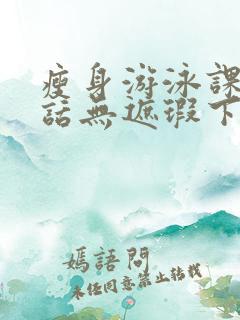 瘦身游泳課
話無遮瑕下
嫣語問
未任同意禁止轉載